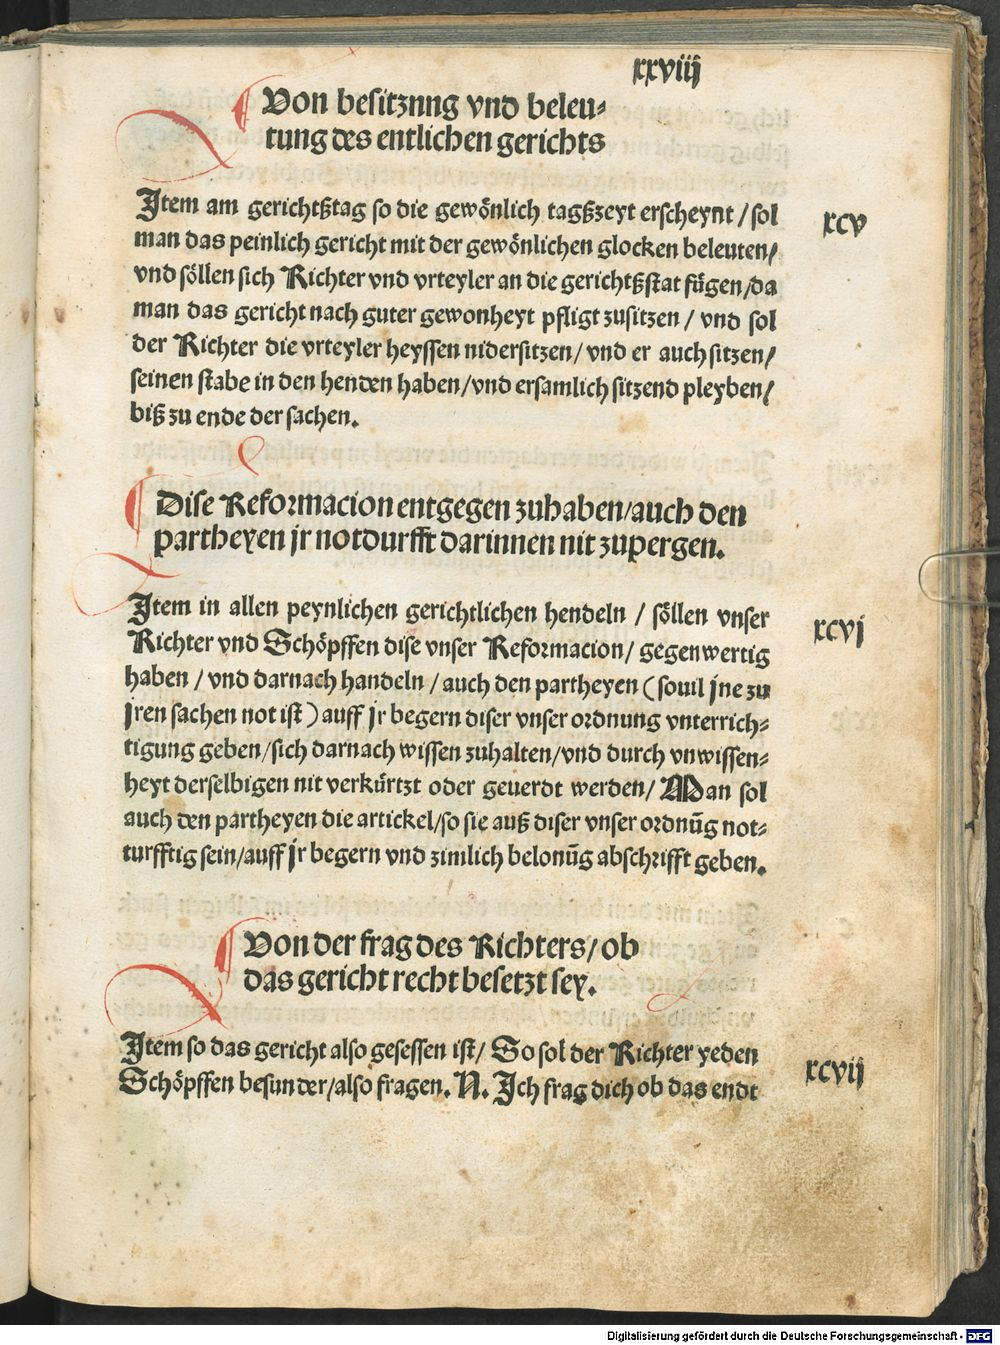 xxviij
Von besitznng vnd beleu-
tung des entlichen gerichts
Item am gerichtßtag so die gewönlich tagßzeyt erscheynt / sol
xcv
man das peinlich gericht mit der gewönlichen glocken beleuten/
vnd söllen sich Richter vnd vrteyler an die gerichtßstat fügen/da
man das gericht nach guter gewonheyt pfligt zusitzen / vnd sol
der Richter die vrteyler heyssen nidersitzen/ vnd er auch sitzen/
seinen stabe in den henden haben/vnd ersamlich sitzend pleyben/
biß zu ende der sachen.
Dise Reformacion entgegen zuhaben/auch den
partheyen jr notdurfft darinnen nit zupergen.
Item in allen peynlichen gerichtlichen hendeln / söllen vnser
xcvj
Richter vnd Schöpffen dise vnser Reformacion/ gegenwertig
haben / vnd darnach handeln / auch den partheyen ( souil jne zu
jren sachen not ist ) auff jr begern diser vnser ordnung vnterrich-
tigung geben/sich darnach wissen zuhalten/vnd durch vnwissen-
heyt derselbigen nit verkürtzt oder geuerdt werden/ Man sol
auch den partheyen die artickel/so sie auß diser vnser ordnūg not-
turfftig sein/auff jr begern vnd zimlich belonūg abschrifft geben.
Von der frag des Richters/ ob
das gericht recht besetzt sey.
Item so das gericht also gesessen ist/ So sol der Richter yeden
xcvij
Schöpffen besunder/also fragen. N. Ich frag dich ob das endt
Digitalisierung gefördert durch die Deutsche Forschungsgemeinschaft - DFG